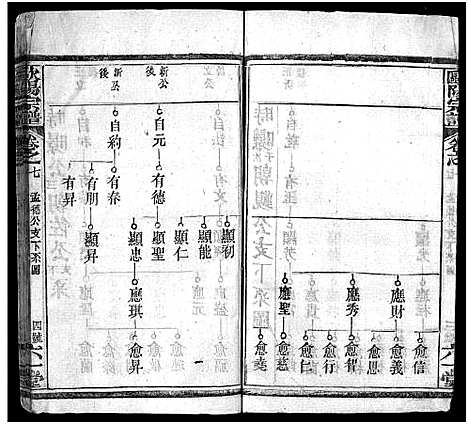 歐陽宗譜
卷之七
孟德公支下系圖
六一堂
應財
應秀
應聖
愈信
愈義
愈思
愈智
愈行
愈仁
愈堯
歐陽宗譜
卷之七
孟德公支下系圖
四號
六一堂
新公後
新公後
自元
自約
有德
有春
有朋
有昇
顯初
顯能
顯仁
顯聖
顯忠
顯昇
應琪
愈昇